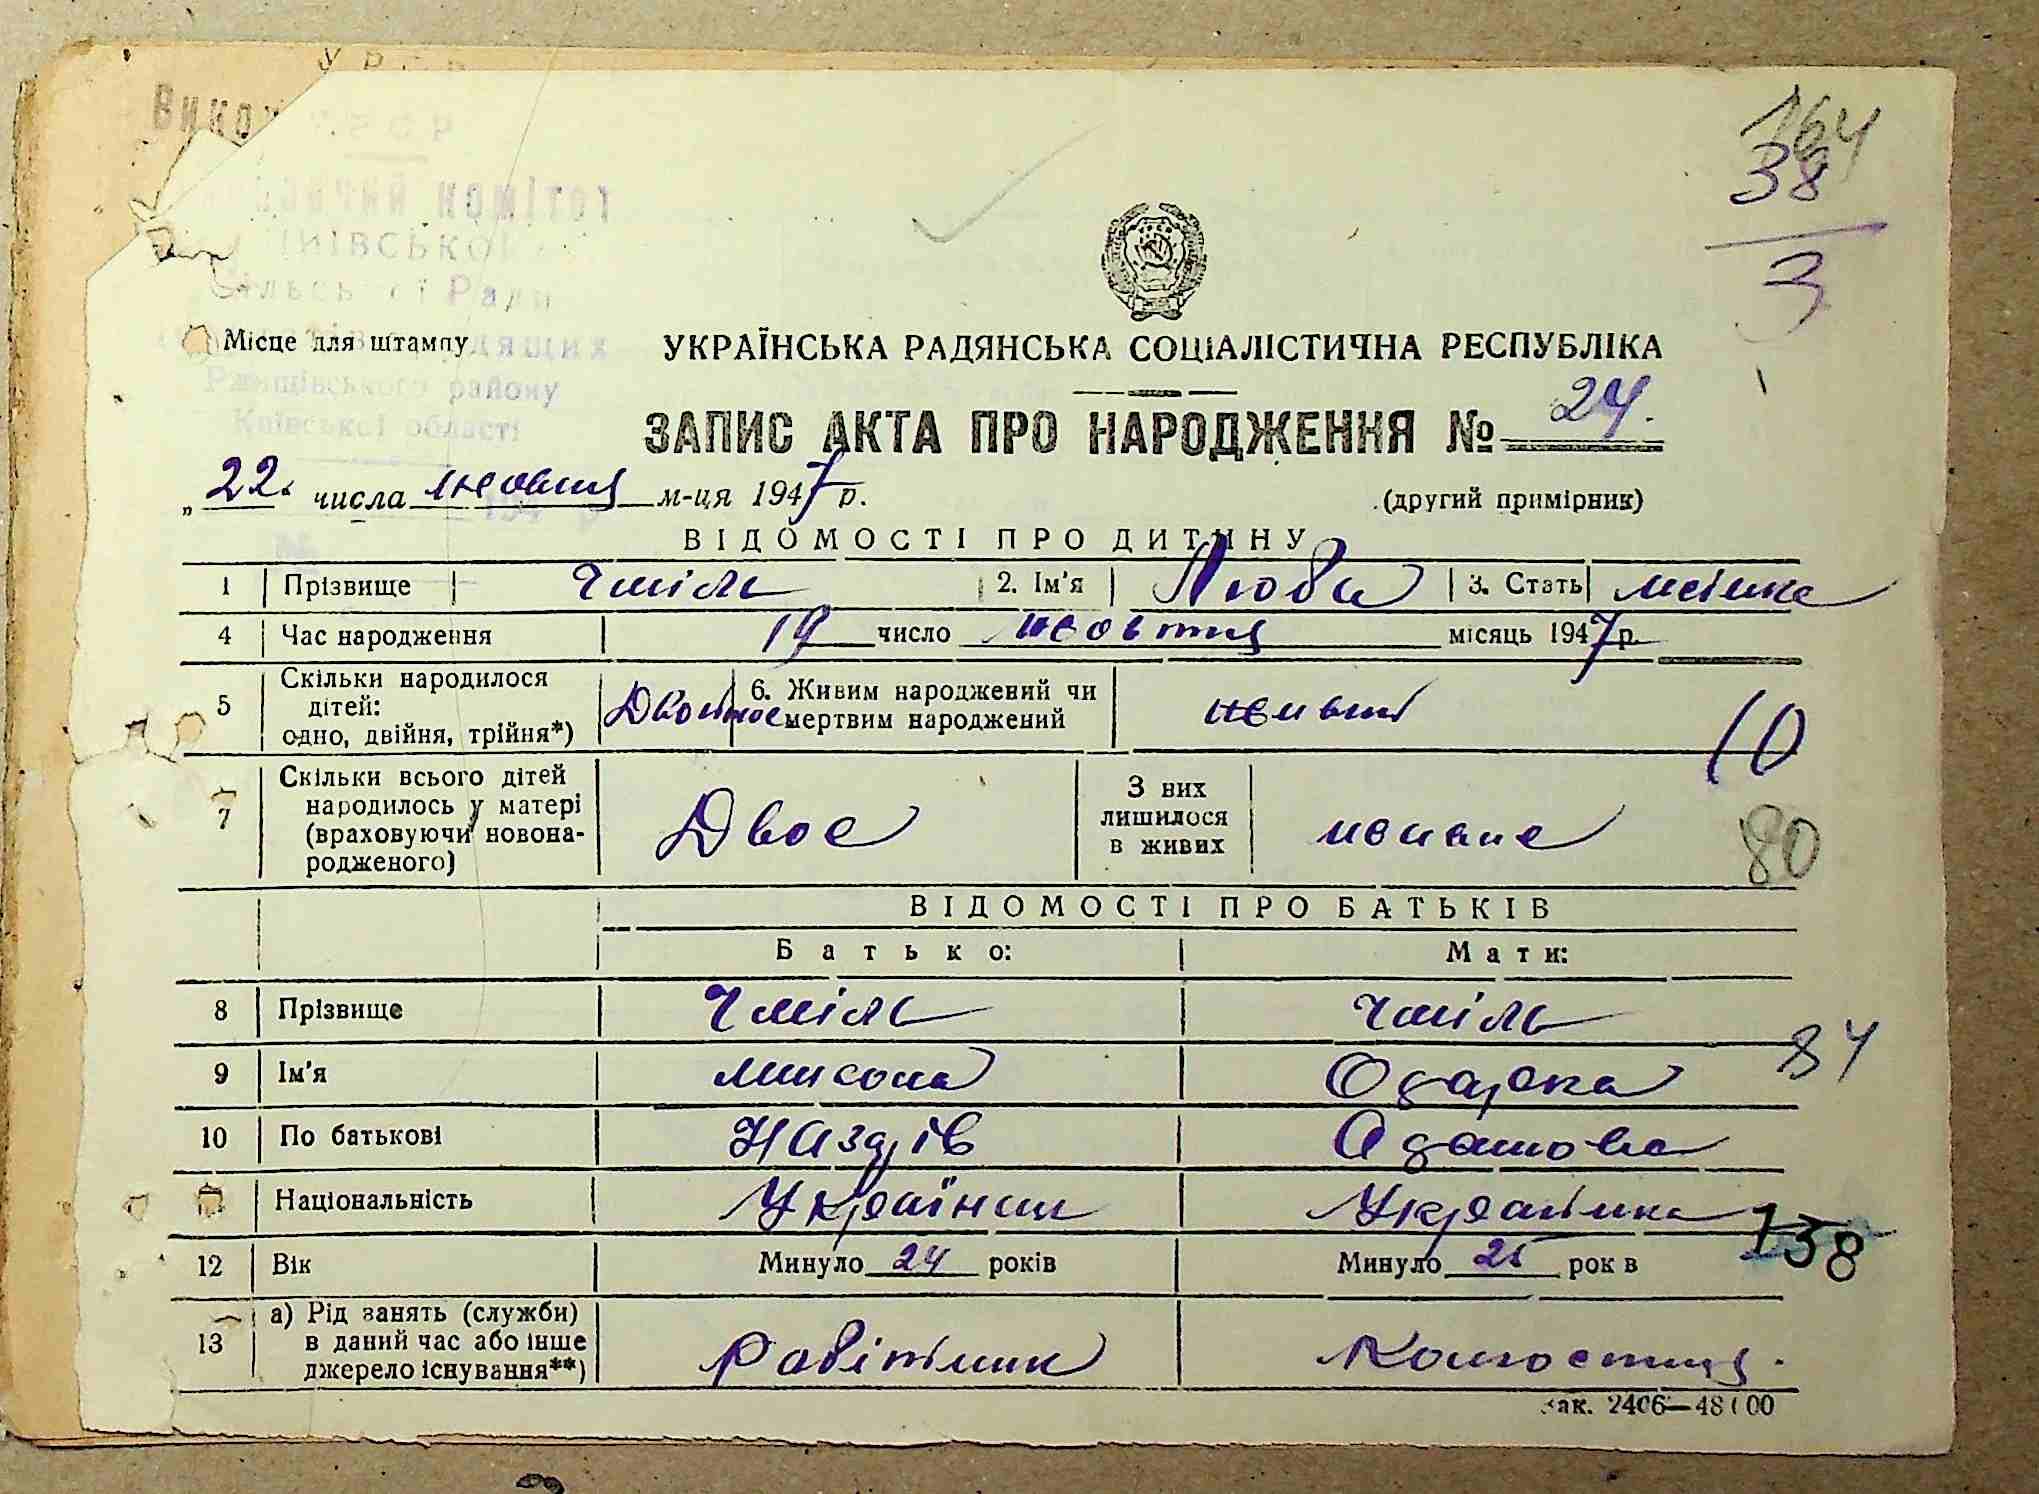 УРСР
164
38
3
Сільської Ради
Місце для штампу
Ржищівського району
Київської області
УКРАЇНСЬКА РАДЯНСЬКА СОЦІАЛІСТИЧНА РЕСПУБЛІКА
ЗАПИС АКТА ПРО НАРОДЖЕННЯ № 24.
„22 числа жовтня м-ця 1947 р.
(другий примірник)
ВІДОМОСТІ ПРО ДИТИНУ
1 Прізвище Чміль 2. Ім'я Люба 3. Стать жіноча
4 Час народження 19 число жовтня місяць 1947 р.
5 Скільки народилося дітей: одно, двійня, трійня*) Двойнює 6. Живим народжений чи мертвим народжений живий
10
7 Скільки всього дітей народилось у матері (враховуючи новонародженого) Двоє З них лишилося в живих
80
ВІДОМОСТІ ПРО БАТЬКІВ
Батько: Мати:
8 Прізвище Чміль Чміль
9 Ім'я Микола Одарка
84
10 По батькові Назарів Адамова
Національність Українец Українка
138
12 Вік Минуло 24 років Минуло 25 рок в
13 а) Рід занять (служби) в даний час або інше джерело існування**) робітник Колгоспниця.
Зак. 2406—48000